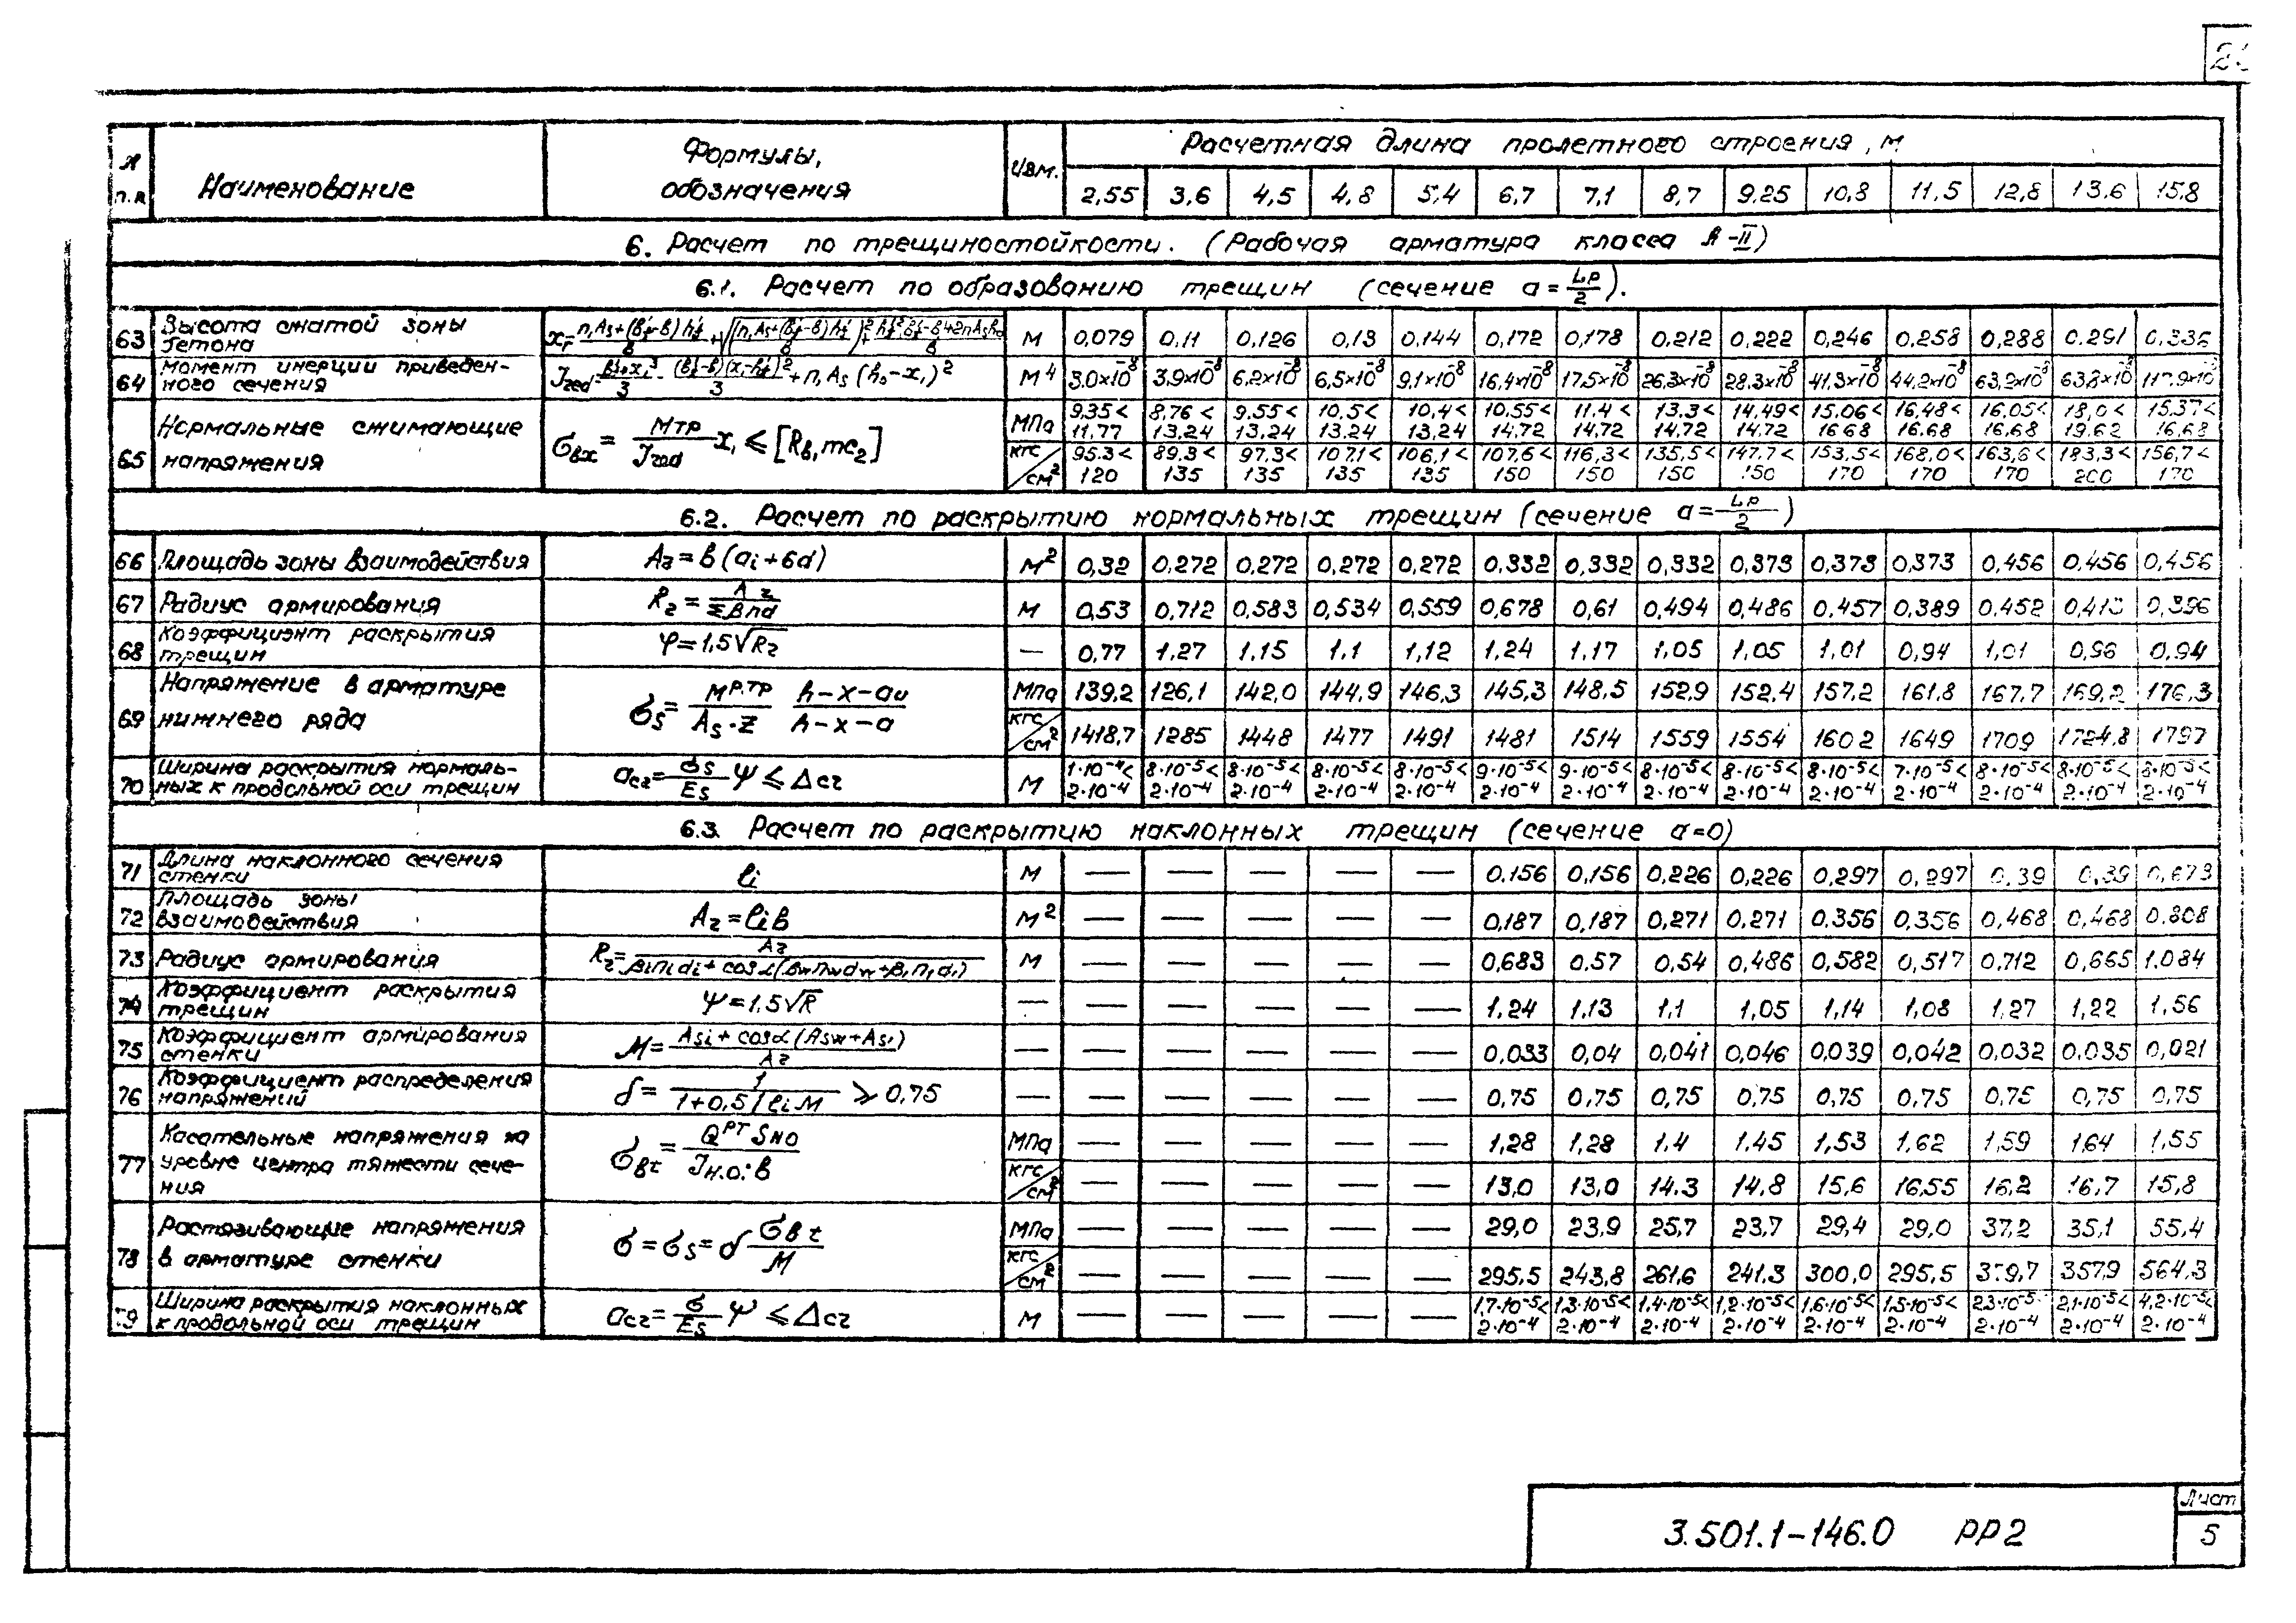 № п.п. | Наименование | Формулы, обозначения | Изм. | Расчетная длина пролетного строения, м
2,55 | 3,6 | 4,5 | 4,8 | 5,4 | 6,7 | 7,1 | 8,7 | 9,25 | 10,8 | 11,5 | 12,8 | 13,6 | 15,8
6. Расчет по трещиностойкости. (Рабочая арматура класса А-II)
6.1. Расчет по образованию трещин (сечение a = Lр/2).
63 | Высота сжатой зоны бетона | м | 0,079 | 0,11 | 0,126 | 0,13 | 0,144 | 0,172 | 0,178 | 0,212 | 0,222 | 0,246 | 0,258 | 0,288 | 0.291 | 0,336
64 | Момент инерции приведенного сечения | м⁴ | 3.0×10⁻⁸ | 3,9×10⁻⁸ | 6,2×10⁻⁸ | 6,5×10⁻⁸ | 9,1×10⁻⁸ | 16,4×10⁻⁸ | 17,5×10⁻⁸ | 26,3×10⁻⁸ | 28.3×10⁻⁸ | 41,3×10⁻⁸ | 44,2×10⁻⁸ | 63,2×10⁻⁸ | 63,8×10⁻⁸
65 | Нормальные сжимающие напряжения | σвх = Мтр/Jred x₁ ≤ [Rв,mc₂] | МПа | 9,35< 11,77 | 8,76< 13,24 | 9.55< 13,24 | 10,5< 13,24 | 10,4< 13,24 | 10,55< 14,72 | 11.4< 14,72 | 13.3< 14.72 | 14,49< 14,72 | 15,06< 16 68 | 16,48< 16.68 | 16,05< 16,68 | 18,0< 19,62 | 15,37< 16,68
кгс/см² | 95.3< 120 | 89.3< 135 | 97.3< 135 | 107,1< 135 | 106,1< 135 | 107,6< 150 | 116,3< 150 | 135,5< 150 | 147.7< 150 | 153,5< 170 | 168,0< 170 | 163,6< 170 | 183,3< 200 | 156,7< 170
6.2. Расчет по раскрытию нормальных трещин (сечение a = Lр/2)
66 | Площадь зоны взаимодействия | Аг = в(ai+6d) | м² | 0,32 | 0,272 | 0,272 | 0,272 | 0,272 | 0,332 | 0,332 | 0,332 | 0,373 | 0,373 | 0,373 | 0,456 | 0,456 | 0,456
67 | Радиус армирования | Rг = Аг/Σβnd | м | 0,53 | 0,712 | 0,583 | 0,534 | 0,559 | 0,678 | 0,61 | 0,494 | 0,486 | 0,457 | 0,389 | 0,452 | 0,396
68 | Коэффициэнт раскрытия трещин | φ=1,5√Rг | — | 0,77 | 1,27 | 1,15 | 1,1 | 1,12 | 1,24 | 1,17 | 1,05 | 1,05 | 1,01 | 0,94 | 1,01 | 0,96 | 0,94
69 | Напряжение в арматуре нижнего ряда | σs = Мр.тр/(Аs·z) (h-x-au)/(h-x-a) | МПа | 139,2 | 126,1 | 142,0 | 144,9 | 146,3 | 145,3 | 148,5 | 152,9 | 152,4 | 157,2 | 161,8 | 167,7 | 169,2 | 176,3
кгс/см² | 1418,7 | 1285 | 1448 | 1477 | 1491 | 1481 | 1514 | 1559 | 1554 | 1602 | 1649 | 1709 | 1724,8 | 1797
70 | Ширина раскрытия нормальных к продольной оси трещин | acг = σs/Es ψ ≤ Δcг | м | 1·10⁻⁴< 2·10⁻⁴ | 8·10⁻⁵< 2·10⁻⁴ | 8·10⁻⁵< 2·10⁻⁴ | 8·10⁻⁵< 2·10⁻⁴ | 8·10⁻⁵< 2·10⁻⁴ | 9·10⁻⁵< 2·10⁻⁴ | 9·10⁻⁵< 2·10⁻⁴ | 8·10⁻⁵< 2·10⁻⁴ | 8·10⁻⁵< 2·10⁻⁴ | 8·10⁻⁵< 2·10⁻⁴ | 7·10⁻⁵< 2·10⁻⁴ | 8·10⁻⁵< 2·10⁻⁴ | 8·10⁻⁵< 2·10⁻⁴ | 8·10⁻⁵< 2·10⁻⁴
6.3. Расчет по раскрытию наклонных трещин (сечение a=0)
71 | Длина наклонного сечения стенки | ℓi | м | — | — | — | — | — | 0.156 | 0,156 | 0,226 | 0,226 | 0,297 | 0,297 | 0,39 | 0,39 | 0,673
72 | Площадь зоны взаимодействия | Аг=ℓiв | м² | — | — | — | — | — | 0,187 | 0,187 | 0,271 | 0,271 | 0.356 | 0,356 | 0,468 | 0,468 | 0.808
73 | Радиус армирования | Rг = Аг/(βini di + cosα(βwnwdw+β₁n₁d₁)) | м | — | — | — | — | — | 0,683 | 0.57 | 0,54 | 0,486 | 0,582 | 0,517 | 0,712 | 0,665 | 1.084
74 | Коэффициент раскрытия трещин | ψ=1,5√R | — | — | — | — | — | — | 1,24 | 1,13 | 1,1 | 1,05 | 1,14 | 1,08 | 1,27 | 1,22 | 1,56
75 | Коэффициент армирования стенки | М = (Asi + cosα(Asw+As₁))/Аг | — | — | — | — | — | — | 0,033 | 0,04 | 0,041 | 0,046 | 0,039 | 0,042 | 0,032 | 0.035 | 0,021
76 | Коэффициент распределения напряжений | δ = 1/(1+0,5/ℓiМ) ⩾ 0,75 | — | — | — | — | — | — | 0,75 | 0,75 | 0,75 | 0,75 | 0,75 | 0,75 | 0,75 | 0,75 | 0,75
77 | Касательные напряжения на уровне центра тяжести сечения | σвt = Qрт Sно/Jн.о.·в | МПа | — | — | — | — | — | 1,28 | 1,28 | 1.4 | 1.45 | 1,53 | 1,62 | 1,59 | 1,64 | 1,55
кгс/см² | — | — | — | — | — | 13,0 | 13,0 | 14.3 | 14,8 | 15,6 | 16,55 | 16,2 | 16,7 | 15,8
78 | Растягивающие напряжения в арматуре стенки | σ=σs=δ σвt/М | МПа | — | — | — | — | — | 29,0 | 23,9 | 25,7 | 23,7 | 29,4 | 29,0 | 37,2 | 35,1 | 55,4
кгс/см² | — | — | — | — | — | 295,5 | 243,8 | 261,6 | 241,3 | 300,0 | 295,5 | 379,7 | 357,9 | 564,3
79 | Ширина раскрытия наклонных к продольной оси трещин | acг = σ/Es ψ ≤ Δcг | м | — | — | — | — | — | 1,7·10⁻⁵< 2·10⁻⁴ | 1,3·10⁻⁵< 2·10⁻⁴ | 1,4·10⁻⁵< 2·10⁻⁴ | 1,2·10⁻⁵< 2·10⁻⁴ | 1,6·10⁻⁵< 2·10⁻⁴ | 1,5·10⁻⁵< 2·10⁻⁴ | 2,3·10⁻⁵< 2·10⁻⁴ | 2,1·10⁻⁵< 2·10⁻⁴ | 4,2·10⁻⁵< 2·10⁻⁴
3.501.1-146.0 РР2
Лист
5